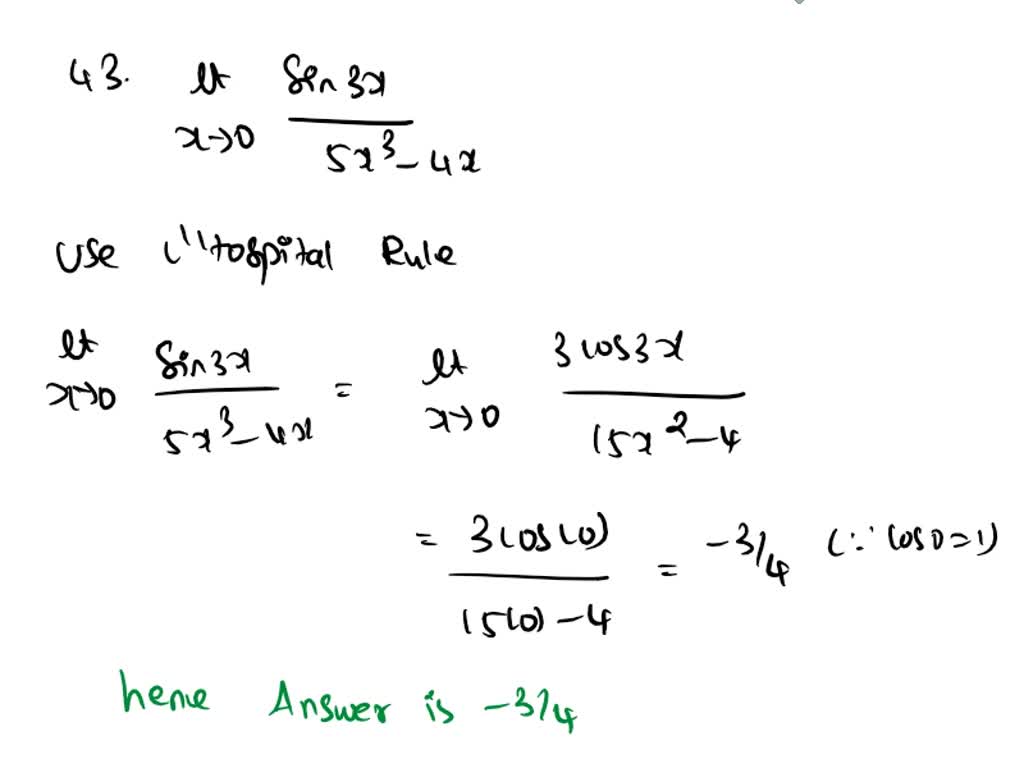 43. lt x→0 sin 3x / 5x³ - 4x
Use L'Hospital Rule
lt x→0 sin 3x / 5x³ - 4x = lt x→0 3 cos 3x / 15x² - 4
= 3 cos(0) / 15(0) - 4 = -3/4 (∵ cos 0 = 1)
hence Answer is -3/4